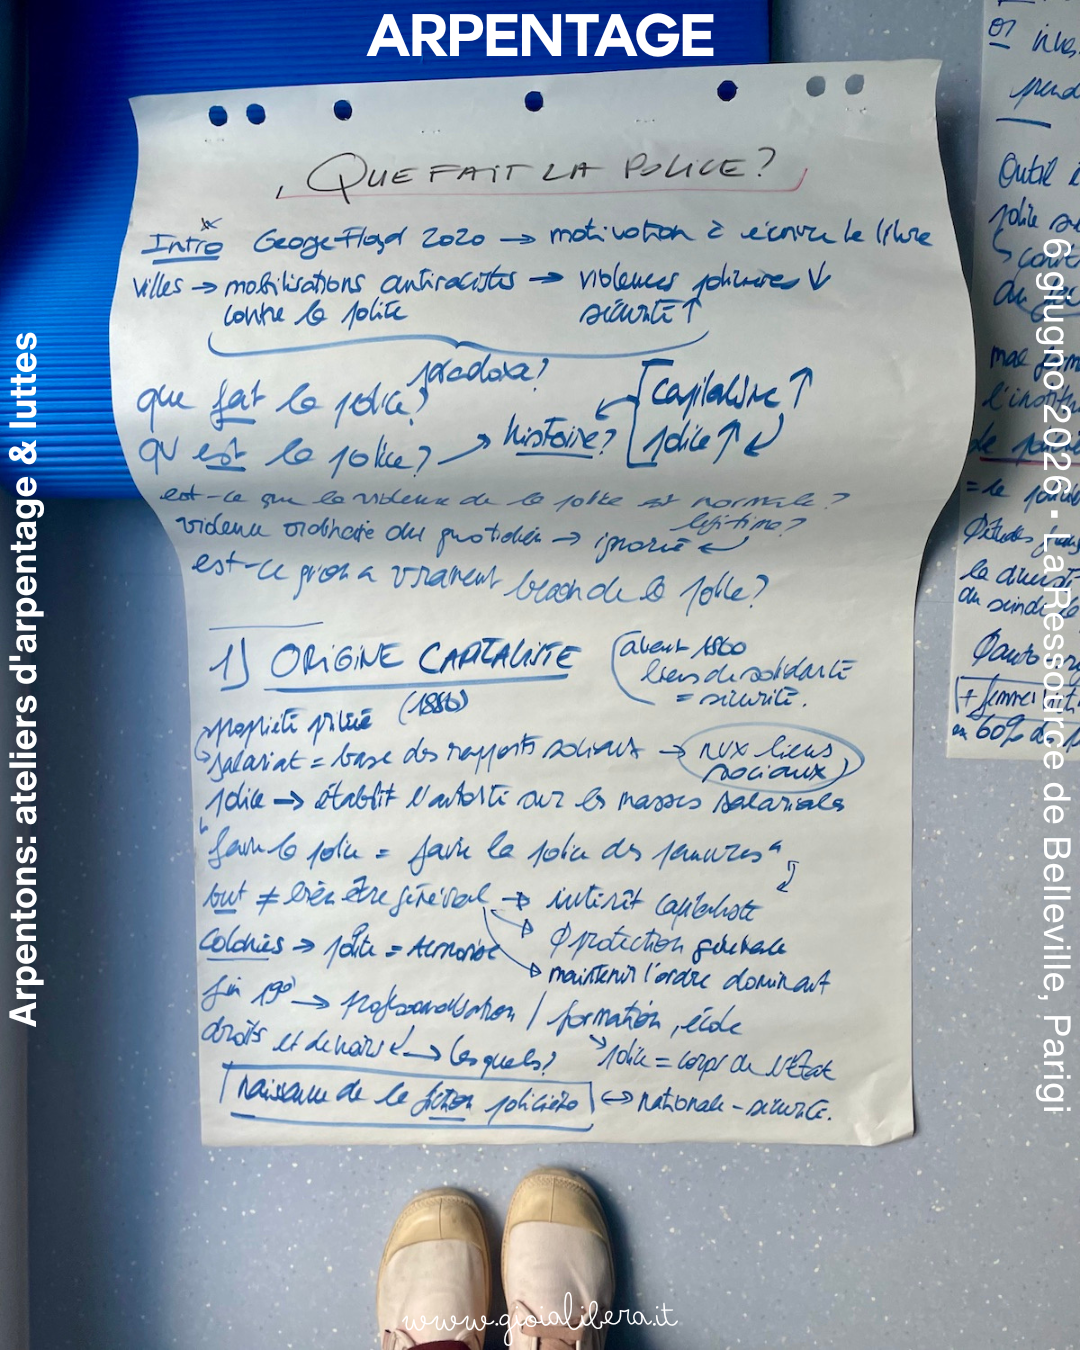 ARPENTAGE
Arpentons: ateliers d'arpentage & luttes
6 giugno 2026 • LaRessource de Belleville, Parigi
QUE FAIT LA POLICE ?
Intro George Floyd 2020 → motivation à écrire le livre
villes → mobilisations antiracistes → violences policières ↓
contre la police sécurité ↑
paradoxe ?
que fait la police ?
qu'est la police ? → histoire ?
capitalisme ↑
police ↑
est-ce que la violence de la police est normale ?
légitime ?
violence ordinaire du quotidien → ignorée
est-ce qu'on a vraiment besoin de la police ?
1) ORIGINE CAPITALISTE
(avant 1860
liens de solidarité
= sécurité.
propriété privée
salariat = base des rapports sociaux → aux liens
sociaux)
police → établit l'autorité sur les masses salariales
faire la police = faire la police des pauvres"
but ≠ bien être général → intérêt capitaliste
Ø protection générale
colonies → police = armée
maintenir l'ordre dominant
fin 19e → professionnalisation / formation, école
droits et devoirs → lesquels ?
police = corps de l'État
naissance de la fiction policière ↔ nationale - sécurité.
or
Outil
police
l'institu
= la
Études
la diversi
du
+ femmes
60%
www.gioialibera.it